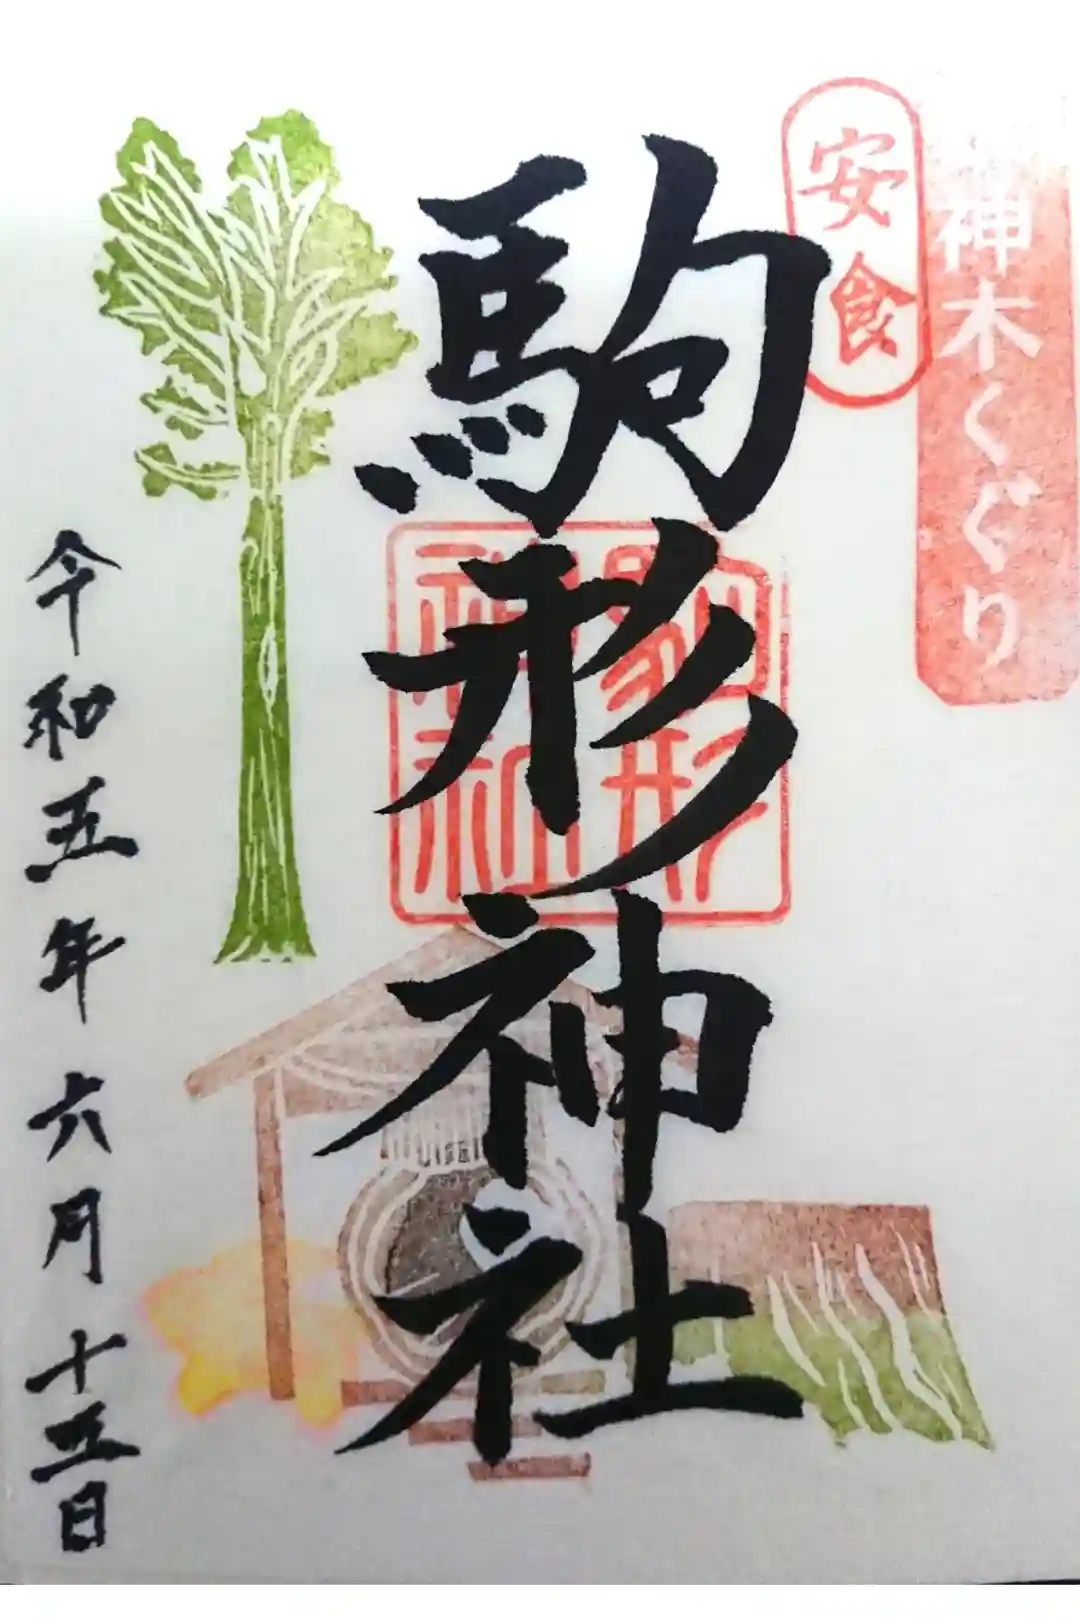 神木くぐり
安食
駒形神社
駒形
神社
令和五年六月十五日